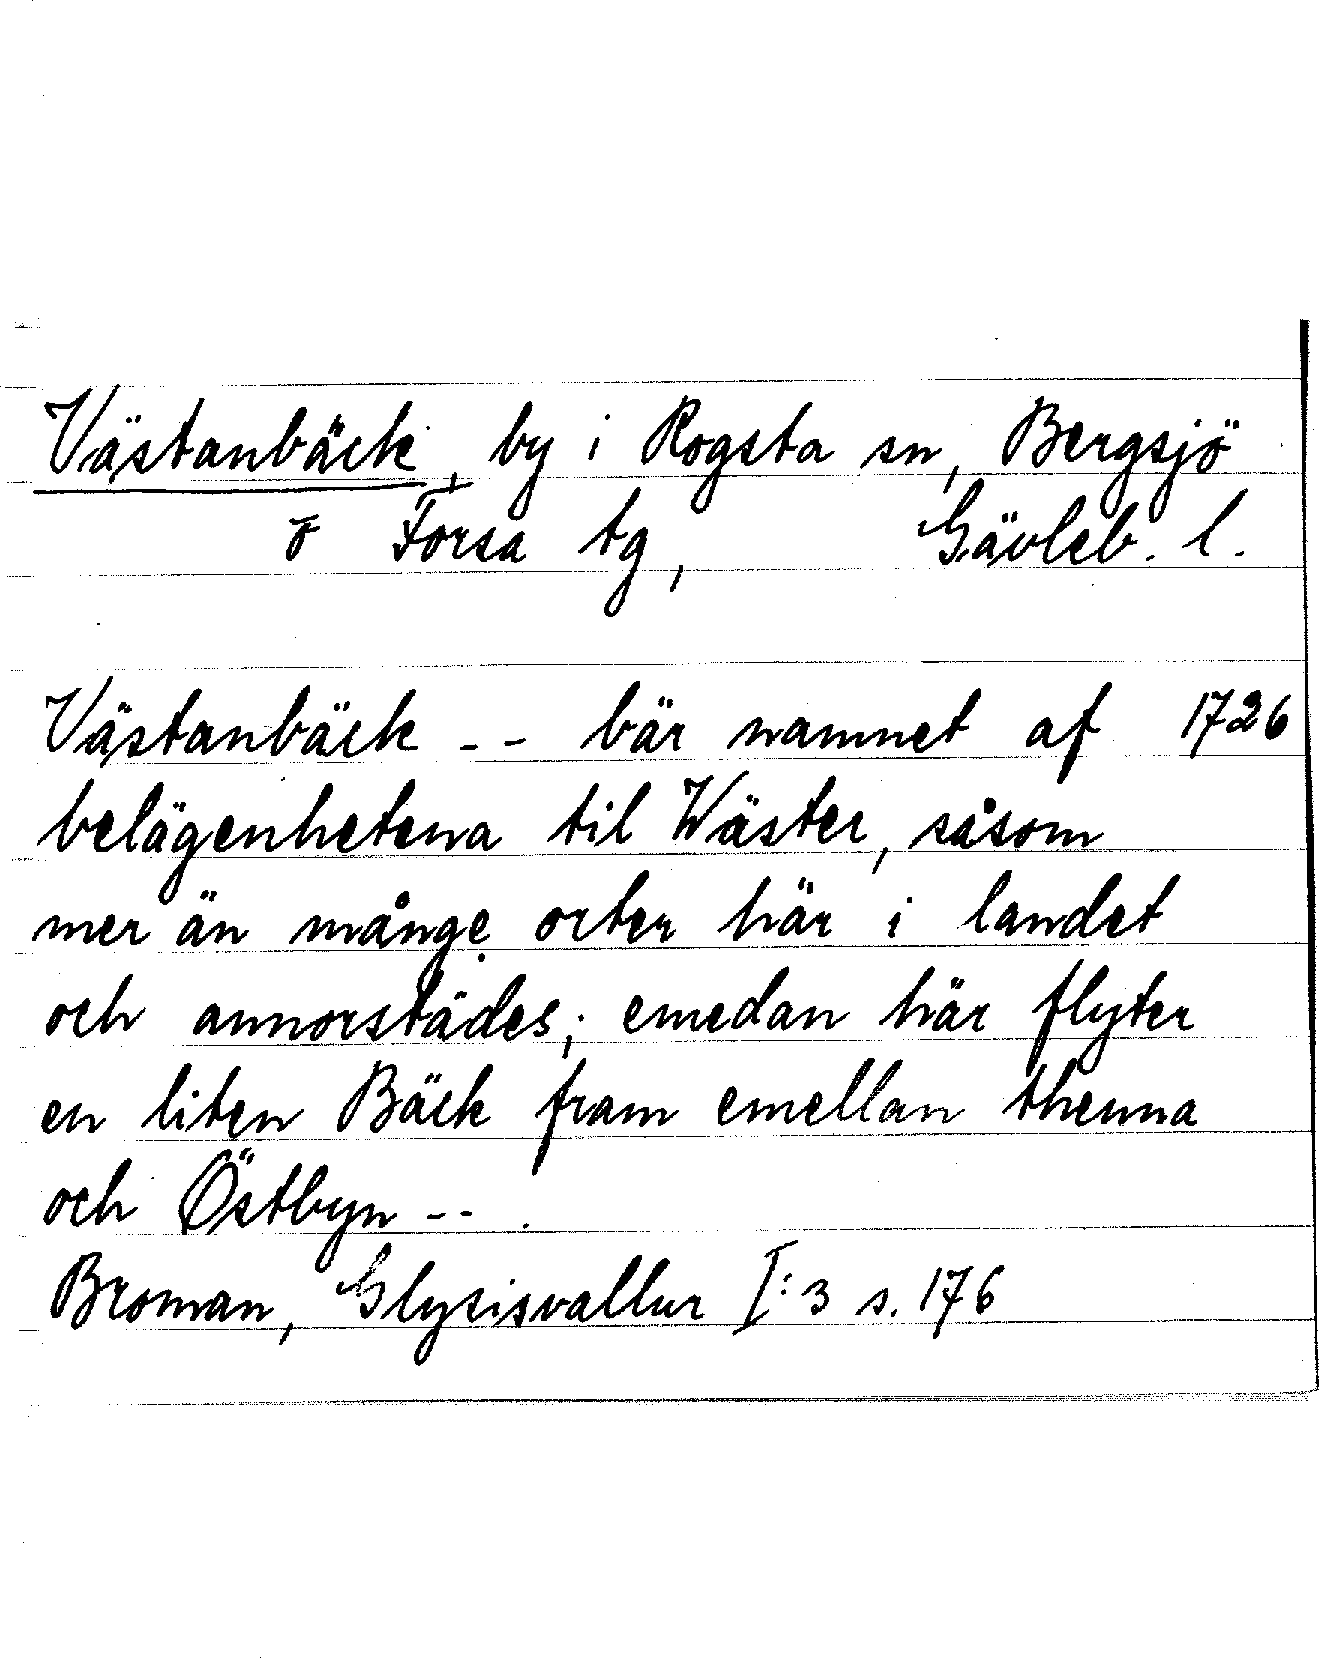 Västanbäck, by i Rogsta sn, Bergsjö
o Forsa tg, Gävleb. l.
Västanbäck -- bär namnet af 1726
belägenhetena til Wäster, såsom
mer än månge orter här i landet
och annorstädes; emedan här flyter
en liten Bäck fram emellan thenna
och Östbyn -- .
Broman, Glysisvallur I:3 s. 176